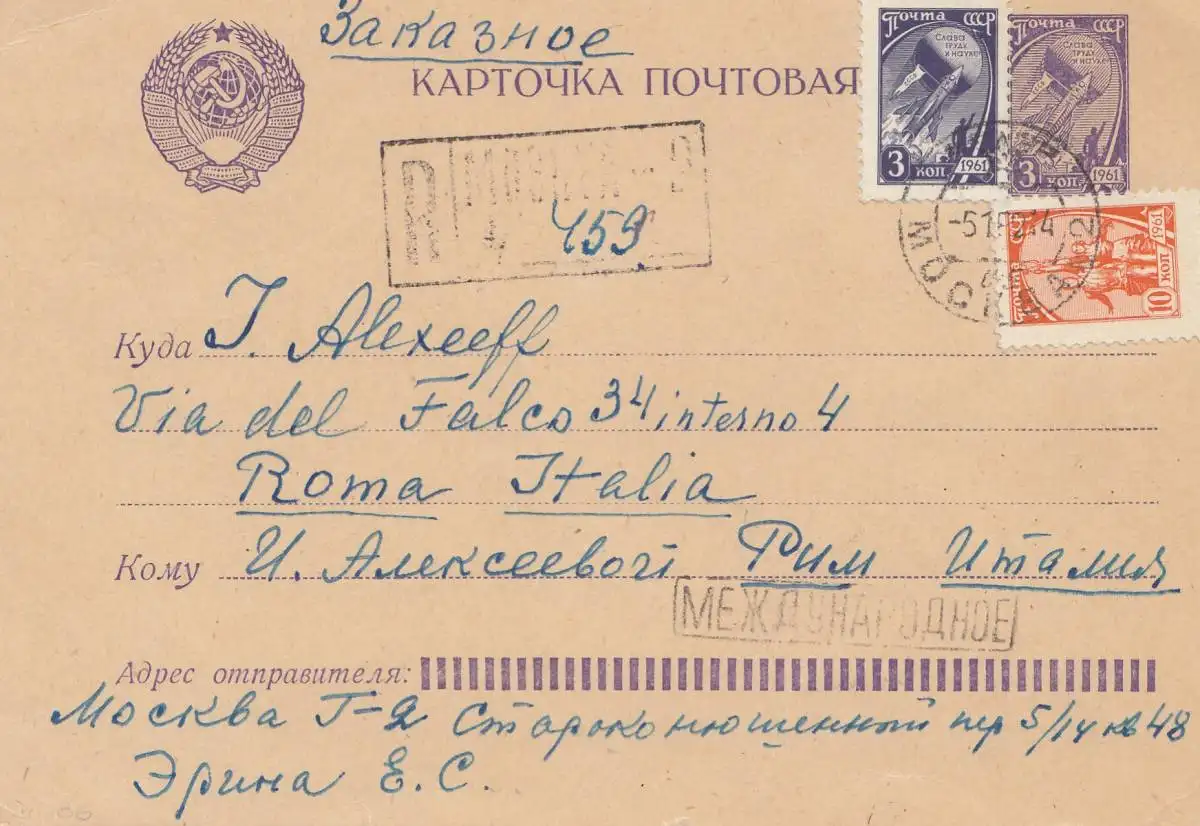 Заказное
КАРТОЧКА ПОЧТОВАЯ
Почта СССР
Слава
труду
и науке
СССР
3 коп 1961
Почта СССР
Слава
труду
и науке
3 коп 1961
R МОСКВА
459
МОСКВА
Почта
10 коп
1961
Куда I. Alexeeff
Via del Falco 34 interno 4
Roma Italia
Кому И. Алексеевой Рим Италия
МЕЖДУНАРОДНОЕ
Адрес отправителя:
Москва Г-2 Староконюшенный пер 5/14 кв 48
Эрина Е. С.